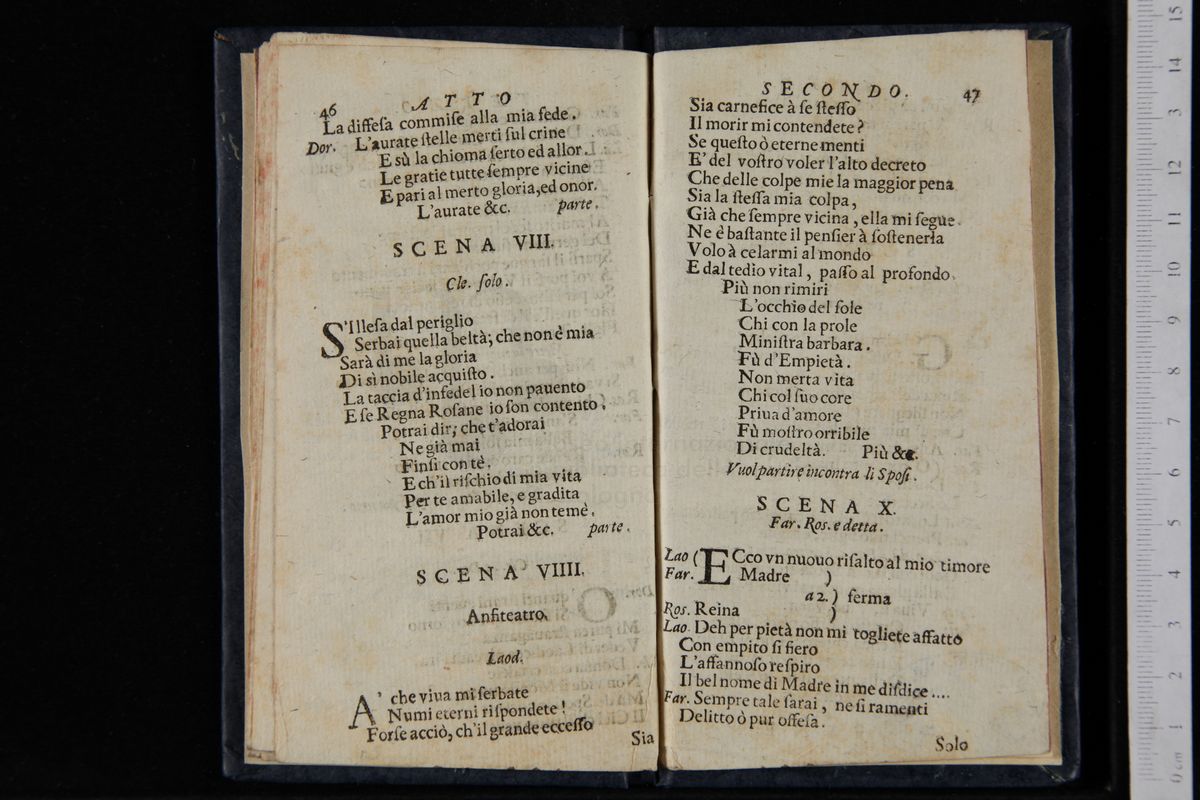 46 ATTO
La diffeſa commiſe alla mia fede.
Dor. L'aurate ſtelle merti ſul crine
E sù la chioma ſerto ed allor.
Le gratie tutte ſempre vicine
E pari al merto gloria, ed onor.
L'aurate &c. parte.
SCENA VIII.
Cle. ſolo.
S'Illeſa dal periglio
Serbai quella beltà; che non è mia
Sarà di me la gloria
Di sì nobile acquiſto.
La taccia d'infedel io non pauento
E ſe Regna Roſane io ſon contento.
Potrai dir; che t'adorai
Ne già mai
Finſi con tè.
E ch'il riſchio di mia vita
Per te amabile, e gradita
L'amor mio già non temè.
Potrai &c. parte.
SCENA VIIII.
Anfiteatro.
Laod.
A' che viua mi ſerbate
Numi eterni riſpondete!
Forſe acciò, ch'il grande ecceſſo
Sia
SECONDO. 47
Sia carnefice à ſe ſteſſo
Il morir mi contendete?
Se queſto ò eterne menti
E' del voſtro voler l'alto decreto
Che delle colpe mie la maggior pena
Sia la ſteſſa mia colpa,
Già che ſempre vicina, ella mi ſegue.
Ne è baſtante il penſier à ſoſtenerla
Volo à celarmi al mondo
E dal tedio vital, paſſo al profondo.
Più non rimiri
L'occhio del ſole
Chi con la prole
Miniſtra barbara.
Fù d'Empietà.
Non merta vita
Chi col ſuo core
Priua d'amore
Fù moſtro orribile
Di crudeltà. Più &c.
Vuol partire incontra li Spoſi.
SCENA X.
Far. Ros. e detta.
Lao (ECco vn nuouo riſalto al mio timore
Far. Madre )
a 2. ) ferma
Ros. Reina )
Lao. Deh per pietà non mi togliete affatto
Con empito ſi fiero
L'affannoſo reſpiro
Il bel nome di Madre in me diſdice....
Far. Sempre tale ſarai, ne ſi ramenti
Delitto ò pur offeſa.
Solo
15
14
13
12
11
10
9
8
7
6
5
4
3
2
1
0 cm